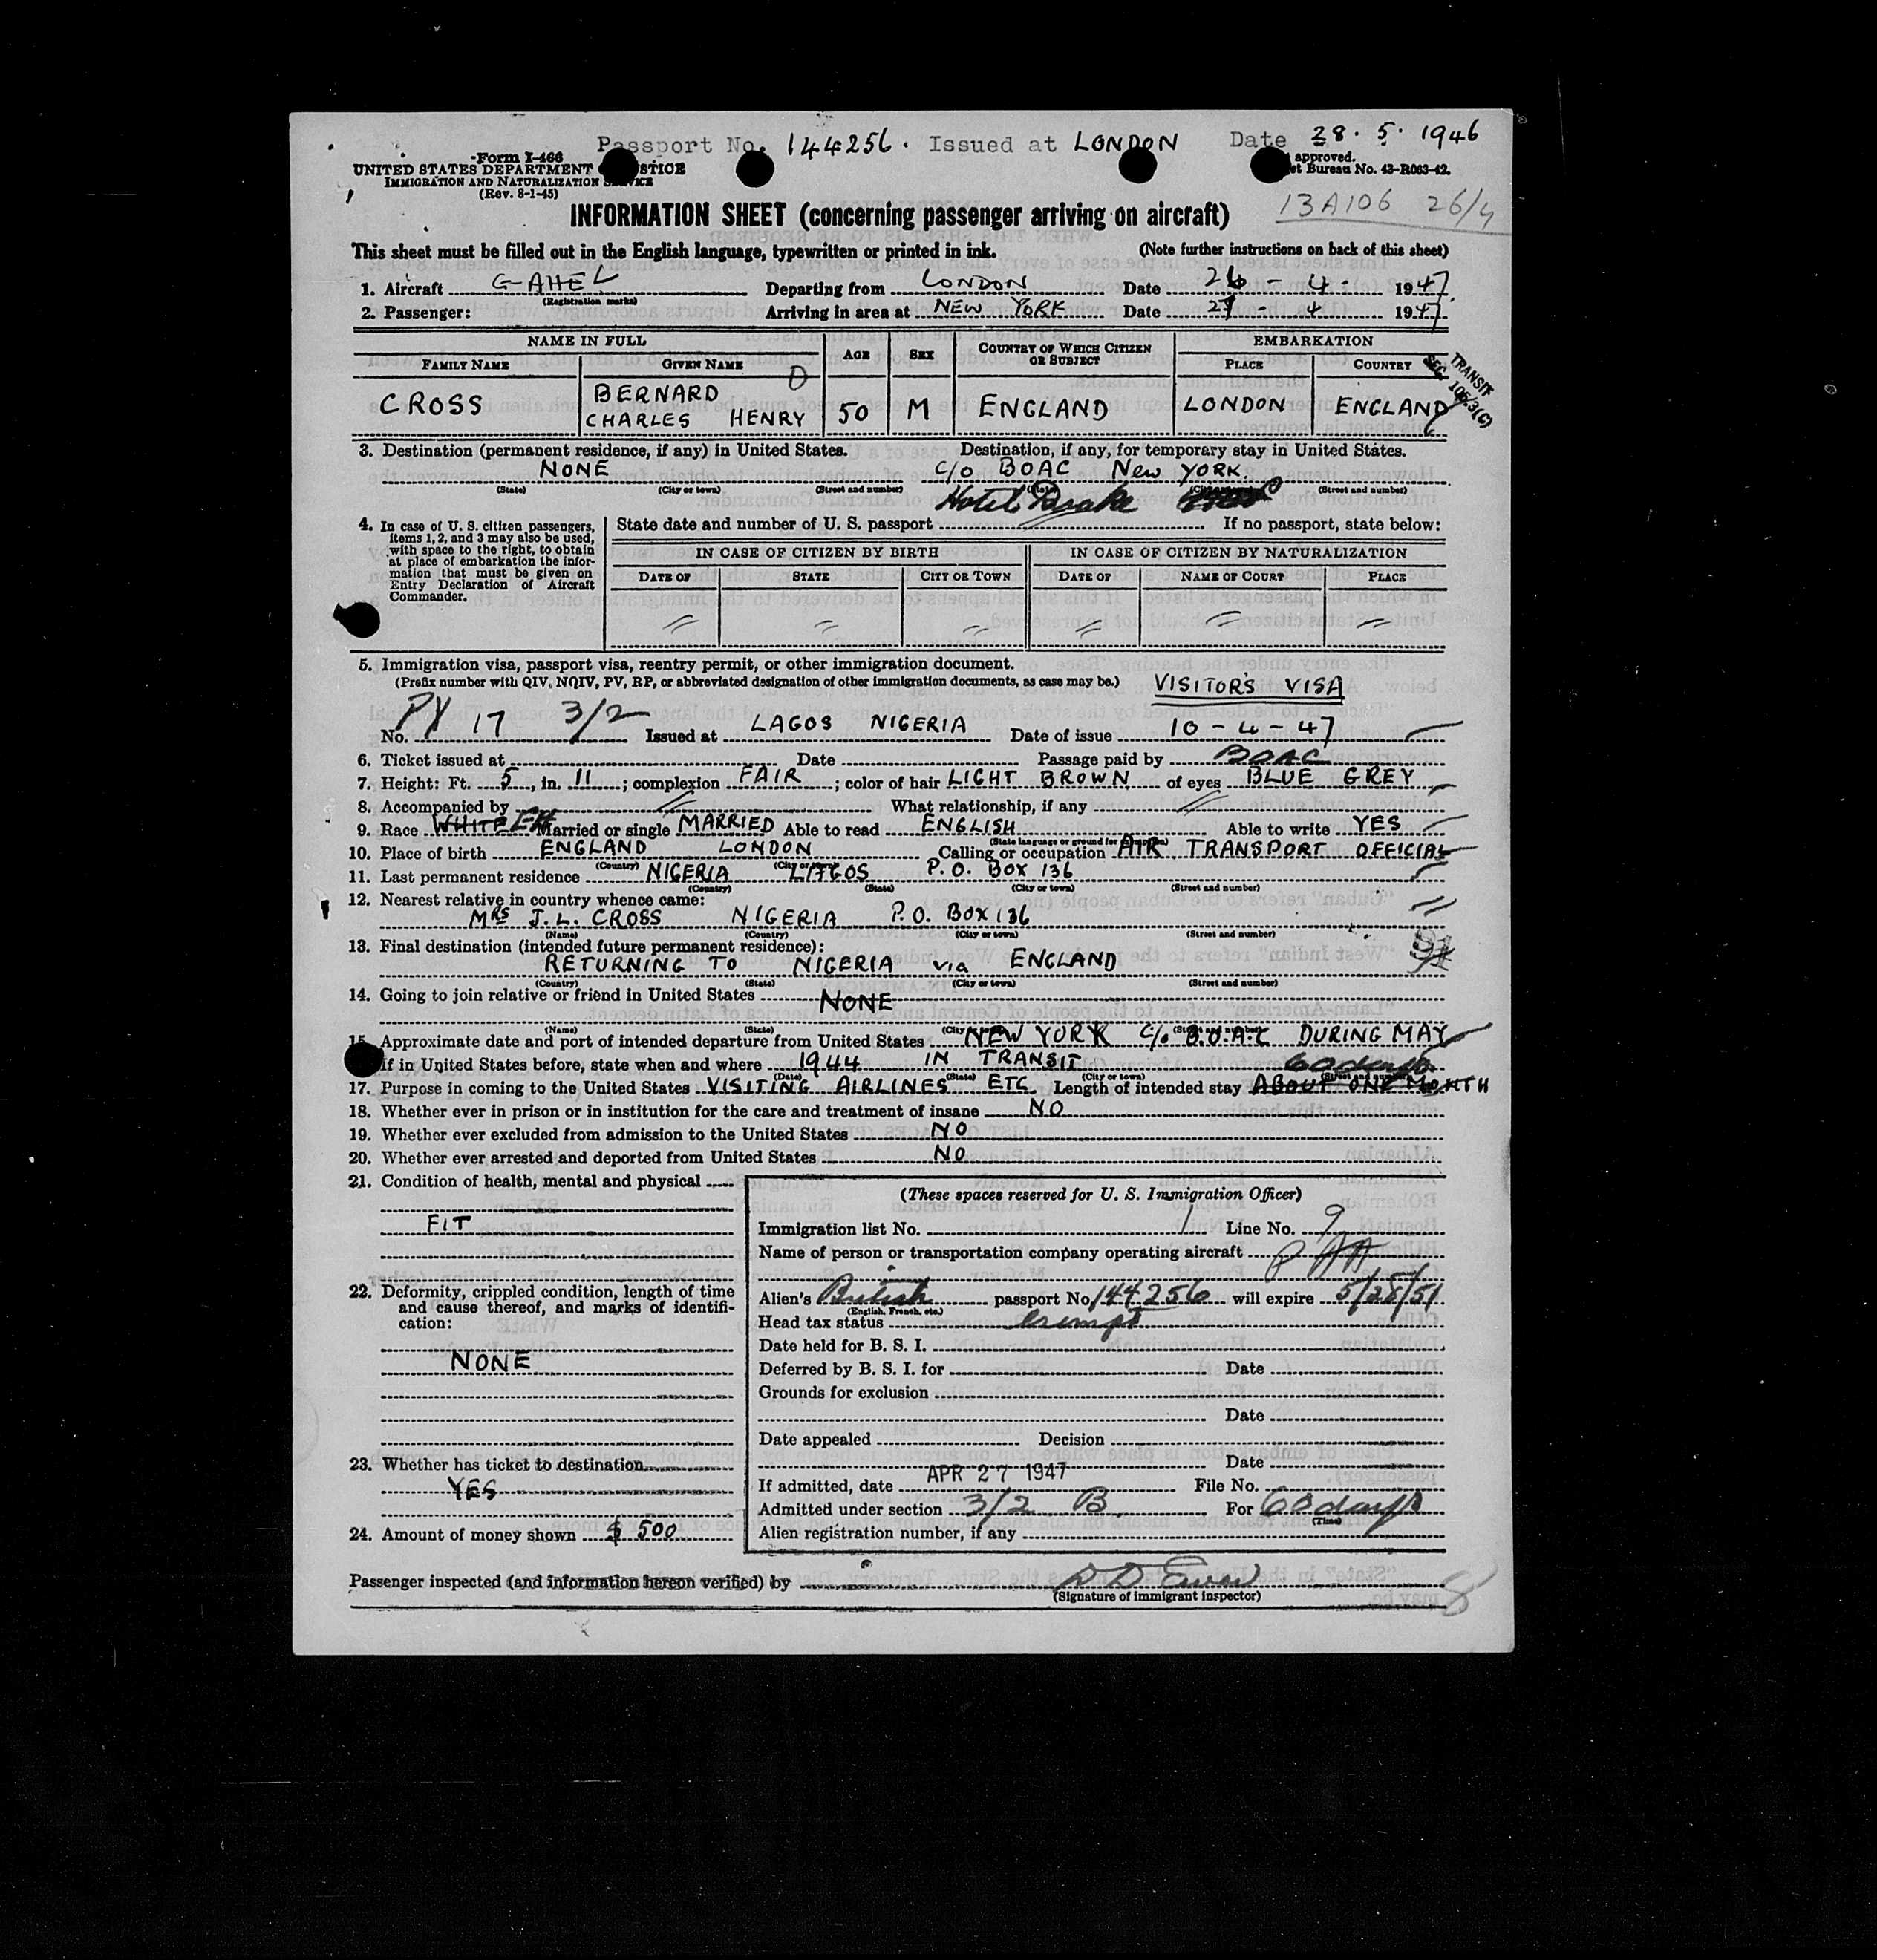 Passport No. 144256. Issued at LONDON Date 28.5.1946
Form I-466
UNITED STATES DEPARTMENT STICE
IMMIGRATION AND NATURALIZATION SERVICE
(Rev. 8-1-45)
approved.
et Bureau No. 43-R063-42.
13A106 26/4
INFORMATION SHEET (concerning passenger arriving on aircraft)
This sheet must be filled out in the English language, typewritten or printed in ink. (Note further instructions on back of this sheet)
1. Aircraft G-AHEL Departing from LONDON Date 26-4-1947.
(Registration marks)
2. Passenger: Arriving in area at NEW YORK Date 27-4 1947
NAME IN FULL AGE SEX COUNTRY OF WHICH CITIZEN OR SUBJECT EMBARKATION
FAMILY NAME GIVEN NAME PLACE COUNTRY
TRANSIT
SEC 10 3(C)
D
CROSS BERNARD CHARLES HENRY 50 M ENGLAND LONDON ENGLAND
3. Destination (permanent residence, if any) in United States. Destination, if any, for temporary stay in United States.
NONE C/O BOAC New YORK
(State) (City or town) (Street and number) (State) (City or town) (Street and number)
Hotel
4. In case of U. S. citizen passengers, items 1, 2, and 3 may also be used, with space to the right, to obtain at place of embarkation the information that must be given on Entry Declaration of Aircraft Commander.
State date and number of U. S. passport If no passport, state below:
IN CASE OF CITIZEN BY BIRTH IN CASE OF CITIZEN BY NATURALIZATION
DATE OF STATE CITY OR TOWN DATE OF NAME OF COURT PLACE
5. Immigration visa, passport visa, reentry permit, or other immigration document.
(Prefix number with QIV, NQIV, PV, RP, or abbreviated designation of other immigration documents, as case may be.) VISITOR'S VISA
No. PV 17 3/2 Issued at LAGOS NIGERIA Date of issue 10-4-47
6. Ticket issued at Date Passage paid by BOAC
7. Height: Ft. 5, in. 11; complexion FAIR; color of hair LIGHT BROWN of eyes BLUE GREY
8. Accompanied by What relationship, if any
9. Race WHITE EN Married or single MARRIED Able to read ENGLISH Able to write YES
(State language or ground for exemption)
10. Place of birth ENGLAND LONDON Calling or occupation AIR TRANSPORT OFFICIAL
(Country) (City or town)
11. Last permanent residence NIGERIA LAGOS P.O. BOX 136
(Country) (State) (City or town) (Street and number)
12. Nearest relative in country whence came:
MRS J. L. CROSS NIGERIA P.O. BOX 136
(Name) (Country) (City or town) (Street and number)
13. Final destination (intended future permanent residence):
RETURNING TO NIGERIA via ENGLAND
(Country) (State) (City or town) (Street and number)
14. Going to join relative or friend in United States NONE
(Name) (State) (City (Street and number)
15. Approximate date and port of intended departure from United States NEW YORK C/o B.O.A.C DURING MAY
If in United States before, state when and where 1944 IN TRANSIT 60 days
(Date) (State) (City or town) (Street and number)
17. Purpose in coming to the United States VISITING AIRLINES ETC Length of intended stay ABOUT ONE MONTH
18. Whether ever in prison or in institution for the care and treatment of insane NO
19. Whether ever excluded from admission to the United States NO
20. Whether ever arrested and deported from United States NO
21. Condition of health, mental and physical
FIT
22. Deformity, crippled condition, length of time and cause thereof, and marks of identification:
NONE
23. Whether has ticket to destination
YES
24. Amount of money shown $ 500
(These spaces reserved for U. S. Immigration Officer)
Immigration list No. 1 Line No. 9
Name of person or transportation company operating aircraft PAA
Alien's British passport No. 144256 will expire 5/28/51
(English, French, etc.)
Head tax status Exempt
Date held for B. S. I.
Deferred by B. S. I. for Date
Grounds for exclusion
Date
Date appealed Decision
Date
If admitted, date APR 27 1947 File No.
Admitted under section 3/2 B For 60 days
(Time)
Alien registration number, if any
Passenger inspected (and information hereon verified) by
(Signature of immigrant inspector)
8